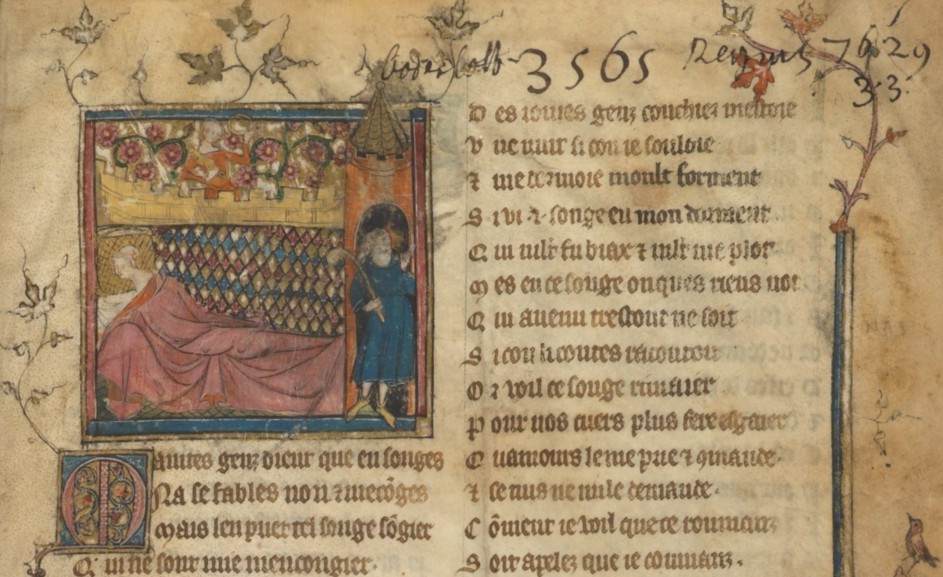 3565 7629
33.
Maintes genz dient que en songes
Na se fables non & mēcōges
Mais len puet tel songe sōgier
Qui ne sont mie mencongier.
D es ioines genz couchiez mestoie
V ne nuit si con ie souloie
& me dormoie moult forment
S i vi .i. songe en mon dorment
Q ui mlt fu biax & mlt me plot
M es en ce songe onques riens not
Q ui auenu trestout ne soit
S i con li contes
O r voil ce songe rimaier
P our uos cuers plus fere esgaier
Q uamours le me prie & cmande.
& se nus ne nule demande.
C ōment ie voil que ce roumanz
S oit apelez que ie coumanz.